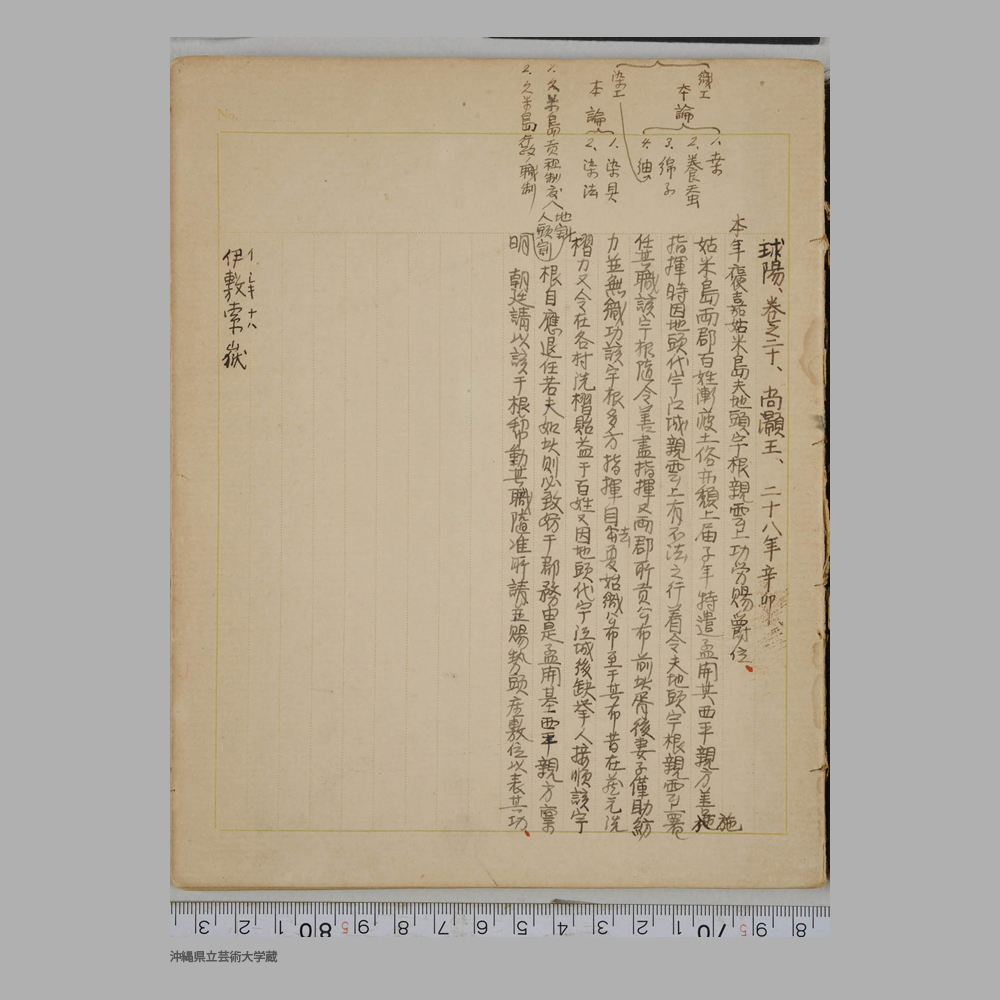 織工
本論
1. 桑
2. 養蚕
3. 綿子
4. 紬
染工
本論
1. 染具
2. 染法
1. 久米島貢租制度
地割
人頭割
2. 久米島女ノ職制
球陽、卷之二十、尚灝王、二十八年辛卯
本年褒嘉姑米島夫地頭宇根親雲上功労賜爵位、
姑米島両郡百姓漸疲土俗亦頽上届子年特遣孟開基西平親方善施
施
指揮時因地頭代宇江城親雲上有不法之行着令夫地頭宇根親雲上署
任其職該宇根隨令善盡指揮又両郡所貢公布前此房後妻子僅助紡
力並無織功該宇根多方指揮自
法
夏始織公布至于其布昔在蔵元洗
榴力又令在各村洗榴貽益于百姓又因地頭代宇江城後缺挙人接順該宇
根自應退任若夫如此則必致妨于郡務由是孟開基西平親方稟
明 朝廷請以該宇根幇勤其職隨准所請並賜勢頭座敷位以表其功、
伊敷索嶽
No.
沖縄県立芸術大学蔵